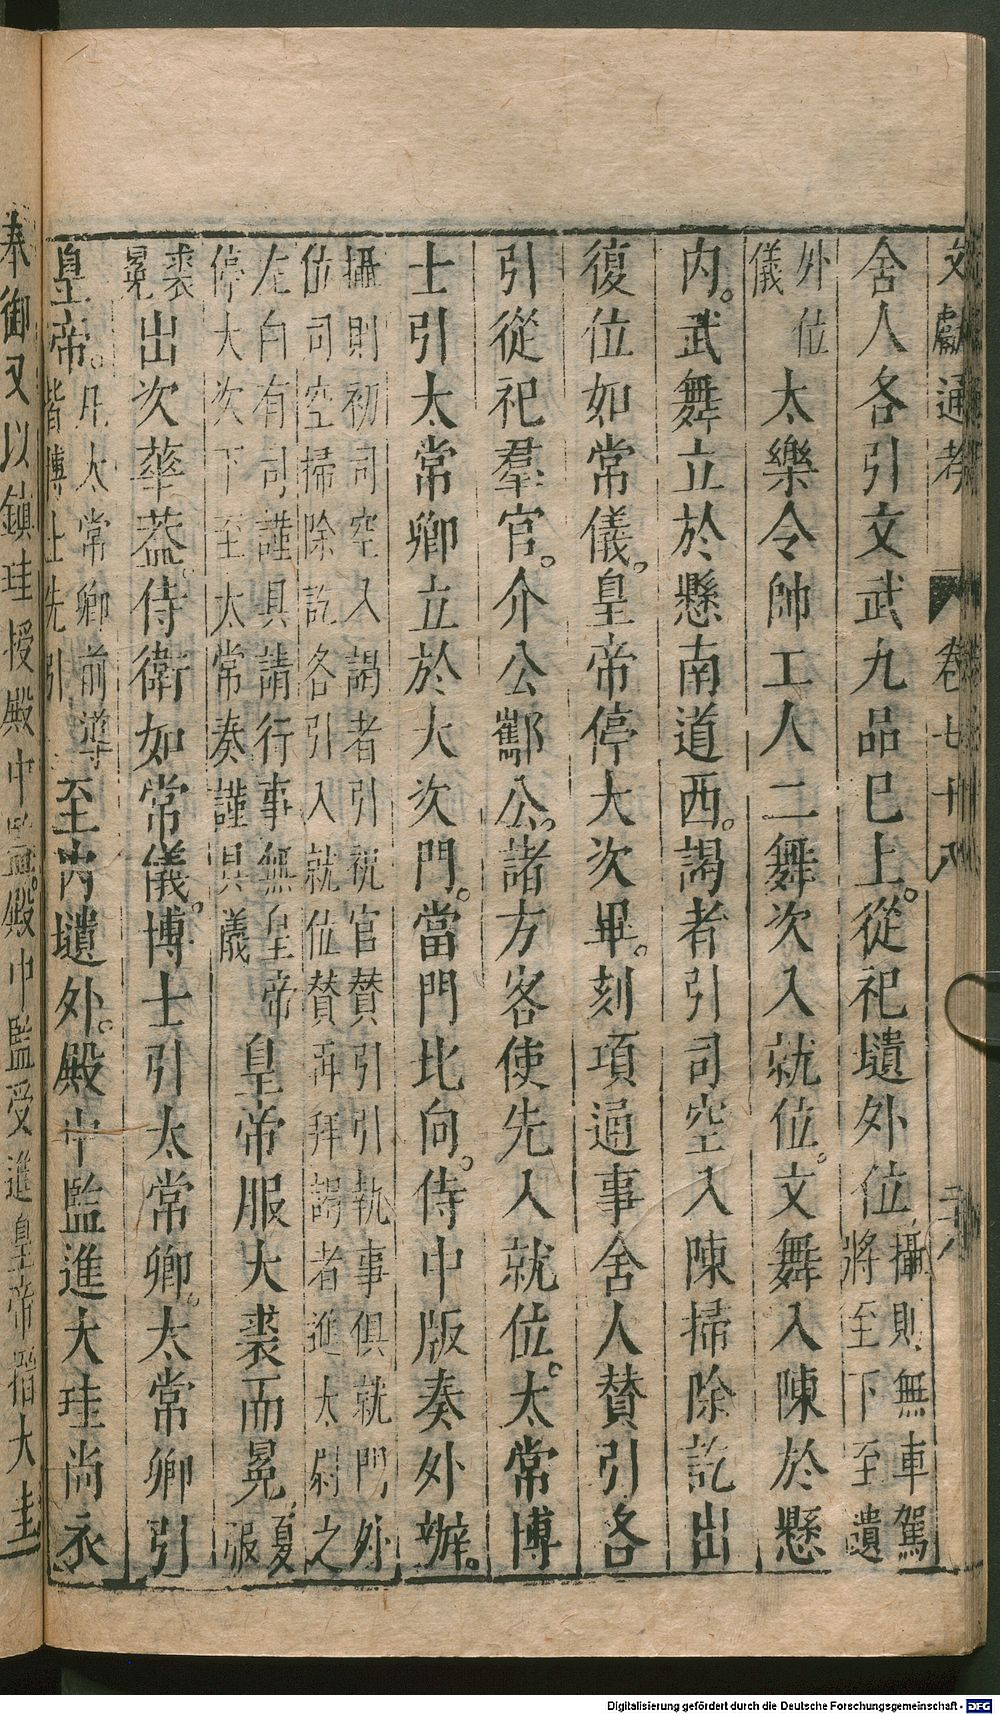 文獻通考 卷七十八
舍人各引文武九品巳上。從祀壝外位攝則無車駕將至下至遺
外位儀太樂令帥工人二舞次入就位。文舞入陳於懸
内。武舞立於懸南道西。謁者引司空入陳掃除訖出
復位如常儀。皇帝停大次畢。刻項通事舍人賛引各
引從祀羣官。介公酅公。諸方客使先入就位。太常博
士引太常卿立於大次門。當門北向。侍中版奏外辦。
攝則初司空入謁者引祝官賛引引執事俱就門外位司空掃除訖各引入就位賛再拜謁者進太尉之
左白有司謹具請行事無皇帝停大次下至太常奏謹具儀皇帝服大裘而冕夏服
裘冕出次華葢侍衛如常儀。博士引太常卿。太常卿引
皇帝。凡太常卿前導皆博士先引至内壝外。殿中監進大珪尚衣
奉御又以鎮珪授殿中監。殿中監受進皇帝搢大圭
Digitalisierung gefördert durch die Deutsche Forschungsgemeinschaft - DFG